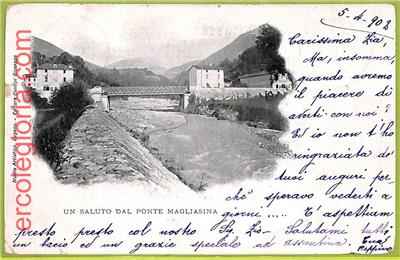 5-4-902
Carissima Zia,
Ma, insomma,
quando avremo
il piacere di
averti con noi?
Ed io non t'ho
ringraziata de'
tuoi auguri per-
chè speravo vederti a
UN SALUTO DAL PONTE MAGLIASINA
giorni ..... T'aspettiam
presto presto col nostro Salutami tutti,
un bacio ed un grazie speciale ad assuntina. tua
Peppina
ercolegloria.com